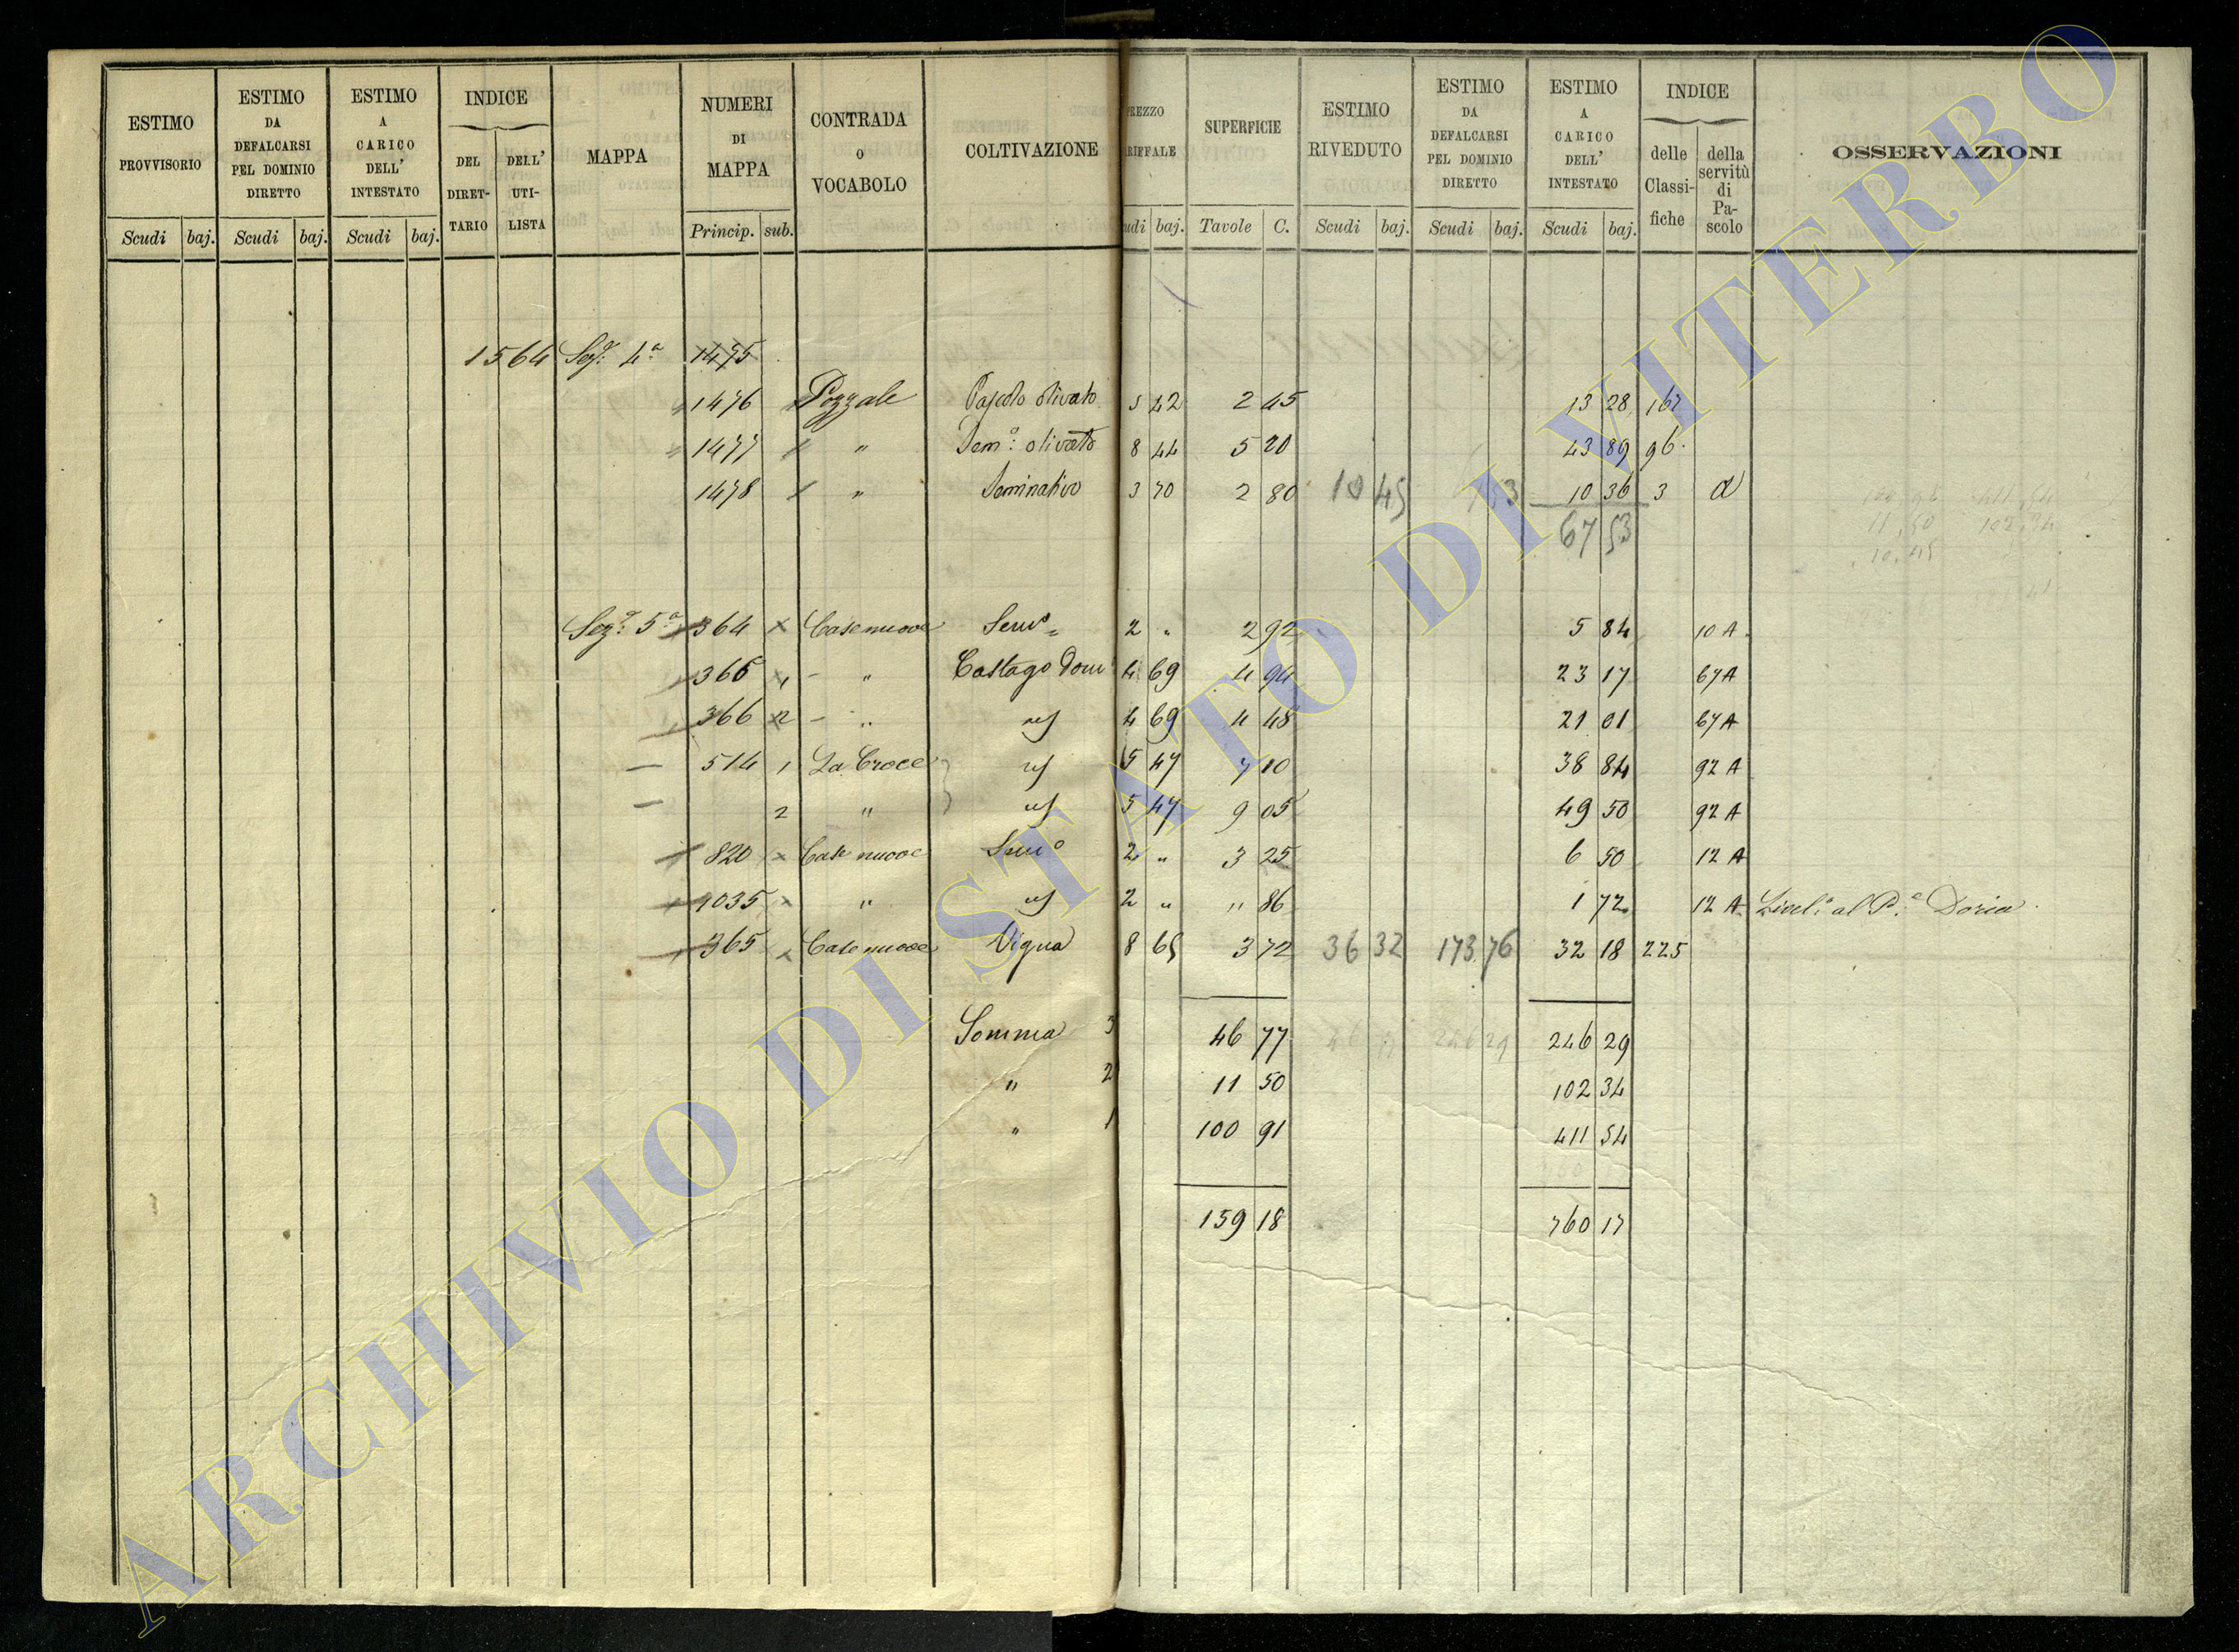 ESTIMO PROVVISORIO
ESTIMO DA DEFALCARSI PEL DOMINIO DIRETTO
ESTIMO A CARICO DELL' INTESTATO
INDICE
DEL DIRET- TARIO
DELL' UTI- LISTA
MAPPA
NUMERI DI MAPPA
CONTRADA O VOCABOLO
COLTIVAZIONE
REZZO RIFFALE
SUPERFICIE
ESTIMO RIVEDUTO
ESTIMO DA DEFALCARSI PEL DOMINIO DIRETTO
ESTIMO A CARICO DELL' INTESTATO
INDICE
delle Classi- fiche
della servitù di Pa- scolo
OSSERVAZIONI
Scudi baj. Scudi baj. Scudi baj. Princip. sub. udi baj. Tavole C. Scudi baj. Scudi baj. Scudi baj.
1564 Sez. 4a 1475
1476 Pozzale Pascolo olivato 5 42 2 45 13 28 167
1477 " Semo: olivato 8 44 5 20 43 89 96
1478 " Seminativo 3 70 2 80 10 45 10 36 3 a
67 53
Seza: 5a 364 Case nuove Semo 2 " 2 92 5 84 10 A
366 1 " Castago Dom 4 69 4 94 23 17 67 A
366 2 " id 4 69 4 48 21 01 67 A
514 1 La Croce id 5 47 7 10 38 84 92 A
2 " id 5 47 9 05 49 50 92 A
820 Case nuove Semo 2 " 3 25 6 50 12 A
1035 " id 2 " " 86 1 72 12 A Livel.o al P.e Doria
365 Case nuove Vigna 8 65 3 72 36 32 173 76 32 18 225
Somma 3 46 77 46 77 246 29 246 29
" 2 11 50 102 34
" 1 100 91 411 54
159 18 760 17
ARCHIVIO DI STATO DI VITERBO